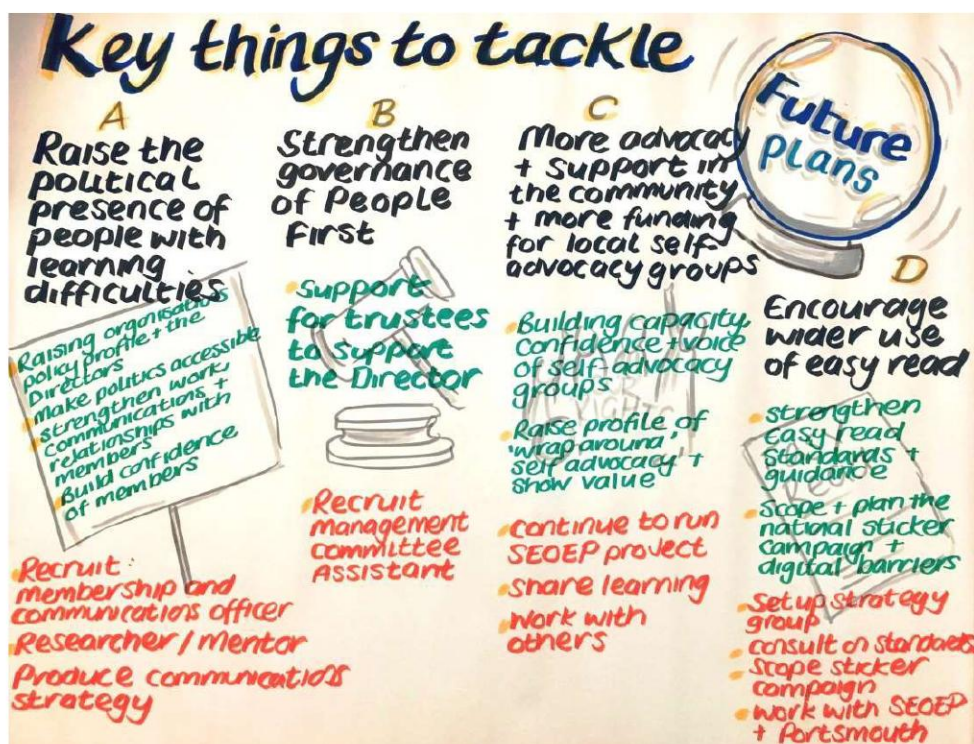 Key things to tackle
Future
Plans
A
Raise the
political
presence of
people with
learning
difficulties
Raising organisations
policy profile + the
Directors
make politics accessible
strengthen work,
communications +
relationships with
members
Build confidence
of members
Recruit
membership and
communications officer
Researcher / mentor
Produce communications
strategy
B
Strengthen
governance
of People
First
support
for trustees
to support
the Director
Recruit
management
committee
Assistant
C
More advocacy
+ support in
the community
+ more funding
for local self-
advocacy groups
Building capacity,
confidence + voice
of self-advocacy
groups
Raise profile of
'wrap around'
self advocacy +
show value
continue to run
SEOEP project
share learning
work with
others
D
Encourage
wider use
of easy read
strengthen
easy read
standards +
guidance
Scope + plan the
national sticker
campaign +
digital barriers
Set up strategy
group
consult on standards
Scope sticker
campaign
work with SEOEP
+ Portsmouth